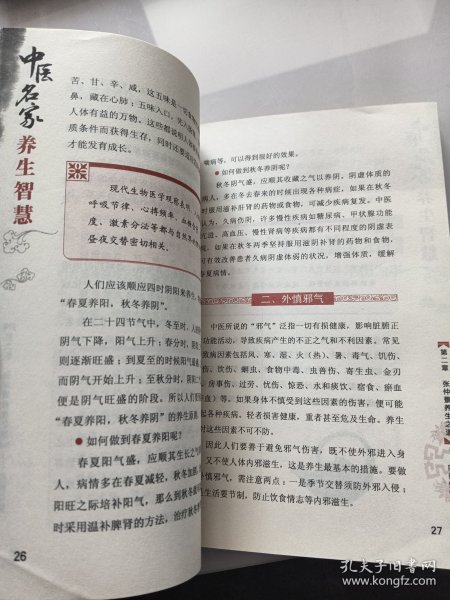 中医名家养生智慧
苦、甘、辛、咸，这五味是一切
鼻，藏在心肺；五味入口，先入
人体有益的万物。这些都说明人
质条件而获得生存，同时还要
才能发育成长。
现代生物医学观察表明，
呼吸节律、心搏频率、血
度、激素分泌等都与自然界
昼夜交替密切相关。
人们应该顺应四时阴阳来养生，
“春夏养阳，秋冬养阴”。
在二十四节气中，冬至时，人
阴气下降，阳气上升；春分时，阴
则逐渐旺盛；到夏至的时候阳气最
而阴气开始上升；至秋分时，阳
便是阴气旺盛的阶段。所以人们
“春夏养阳，秋冬养阴”的养生原
●如何做到春夏养阳呢？
春夏阳气盛，应顺其生长之气
人，病情多在春夏减轻，秋冬加剧
阳旺之际培补阳气，那么到秋冬
时采用温补脾肾的方法，治疗秋冬
26
喘病等，可以得到很好的效果。
●如何做到秋冬养阴呢？
秋冬阴气盛，应顺其收藏之气以养阴。阴虚体质的
病人，多在冬去春来的时候出现各种病症，如果在秋冬
时服用滋补肝肾的药物或食物，可减少疾病复发。中医
认为，久病伤阴，许多慢性疾病如糖尿病、甲状腺功能
亢进、高血压、慢性肾病等疾病都有不同程度的阴虚表
现，如果在秋冬两季坚持服用滋阴补肾的药物和食物，
可有效改善患者久病阴虚体弱的状况，增强体质，缓解
春夏病情。
二、外慎邪气
中医所说的“邪气”泛指一切有损健康，影响脏腑正
常功能活动，导致疾病产生的不正之气和不利因素。常见
致病因素包括风、寒、湿、火（热）、暑、毒气、饥伤、
饱伤、饮伤、蛔虫、食物中毒、虫兽伤、寄生虫、金刃
伤、房事伤、过劳、忧伤、惊恐、水和痰饮、宿食、瘀血
等。如果身体不慎受到这些因素的伤害，便可能
引起各种疾病，轻者损害健康，重者甚至危及生命。养生
时对这些因素不可不防。
因此人们要善于避免邪气伤害，既不使外邪进入身
体，又不使人体内邪滋生，这是养生最基本的措施。要做
到外慎邪气，需注意两点：一是季节交替须防外邪入侵；
二是生活要节制，防止饮食情志等内邪滋生。
第二章
张仲景养生之
27
孔夫子旧书网
www.kongfz.com